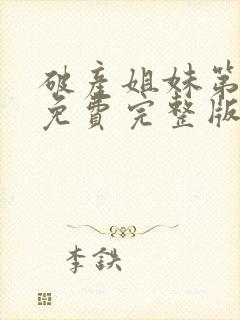 破产姐妹第
免费完整版
李鉄